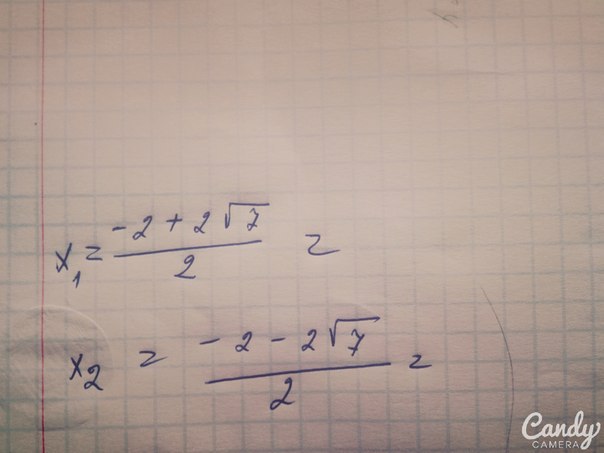 x₁ = (-2 + 2√7)/2 =
x₂ = (-2 - 2√7)/2 =
Candy
CAMERA